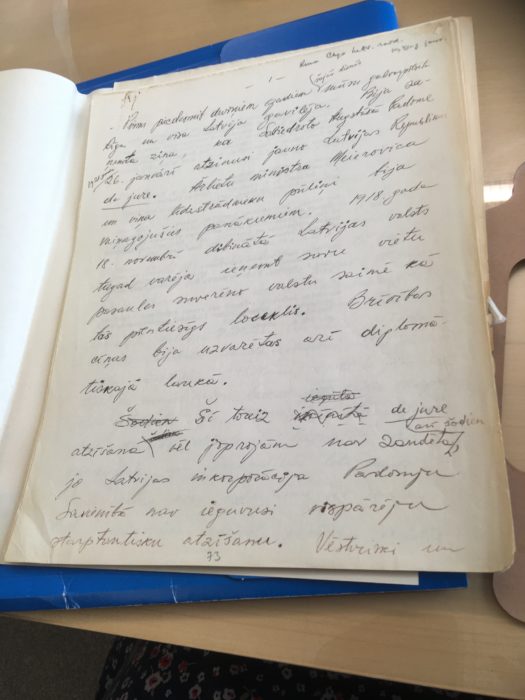 - 1 -
- Pirms piecdesmit diviniem gadiem mūsu galvaspilsēta
Rīga un visa Latvija gavilēja. Bija sa-
ņemta ziņa, ka Sabiedroto Augstākā Padome
26. janvārī atzinusi jauno Latvijas Republiku
de jure. Ārlietu ministra Meierovica
un viņa līdzstrādnieku pūliņi bija
vainagojušies panākumiem. 1918. gada
18. novembrī dibinātā Latvijas valsts
tagad varēja ieņemt savu vietu
pasaules suverēno valstu saimē kā
tās pilntiesīgs loceklis. Brīvības
cīņas bija uzvarētas arī diplomā-
tiskajā laukā.
iegūto
Šodien Šī toreiz de jure
arī šodien
atzīšana vēl joprojām nav zaudēta,
jo Latvijas inkorporācija Padomju
Savienībā nav ieguvusi vispārēju
starptautisku atzīšanu. Vēstnieki un
73